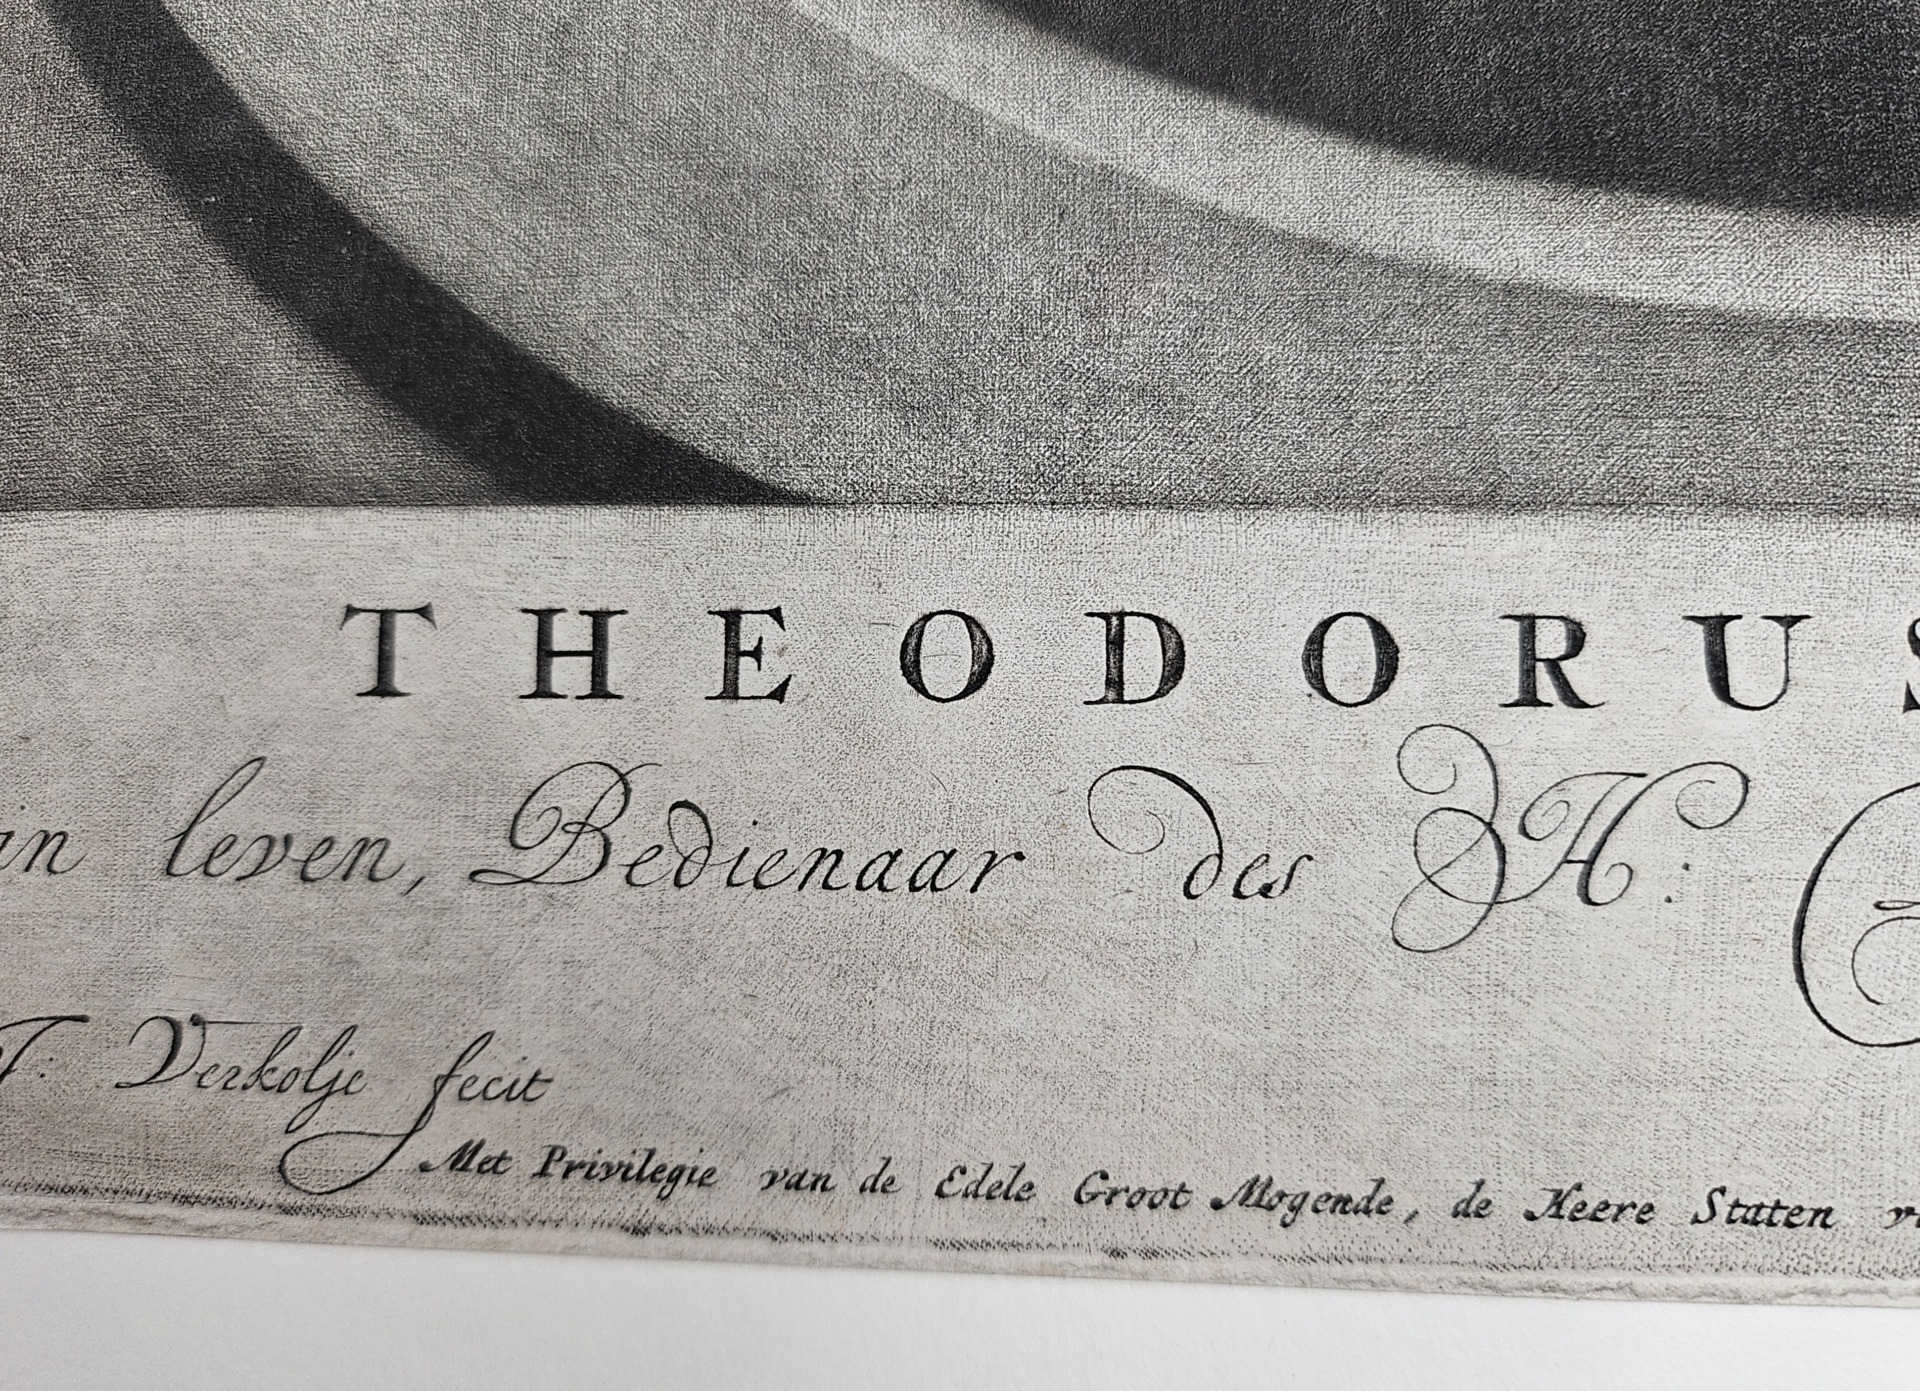 THEODORUS
an leven, Bedienaar des H:
J: Verkolje fecit
Met Privilegie van de Edele Groot Mogende, de Heere Staten